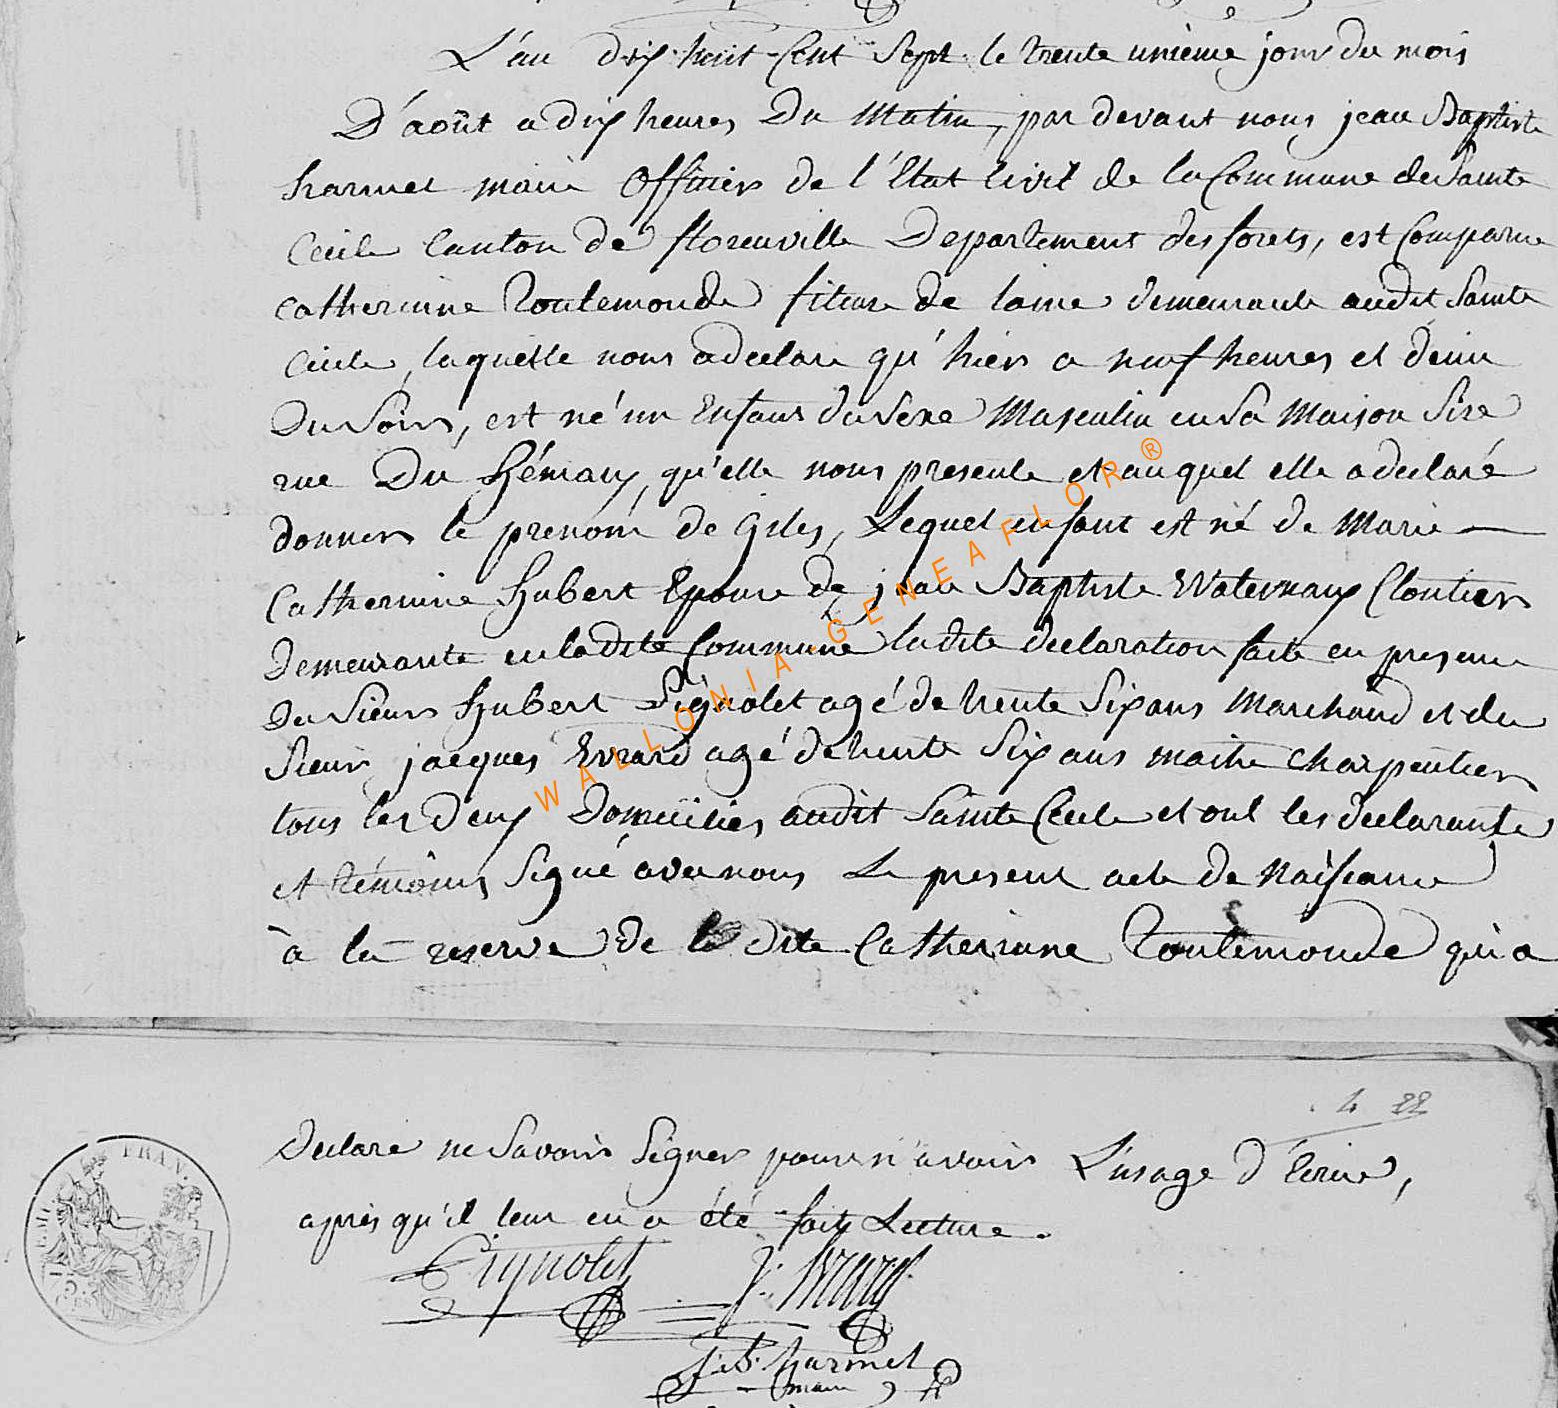 L'an dix huit Cent Sept le trente unieme jour du mois
D'août a dix heures Du Matin, par devant nous jean Baptiste
harmel maire Officier de l'Etat Civil de la Commune de Sainte
Cecile Canton de florenville Departement des forets, est Comparue
Catherinne Toutemonde fileuse de laine demeurante audit Sainte
Cecile, laquelle nous a declaré qu'hier a neuf heures et demie
Du Soir, est né un Enfant du Sexe Masculin en Sa Maison Sise
rue Du qu'elle nous presente et auquel elle a declaré
donner le prenom de Giles, Lequel enfant est né de Marie
Catherinne hubert Epouse de jean Baptiste Waternaux Cloutier
Demeurante en ladite Commune ladite declaration faite en presence
Du Sieur hubert Pignolet agé de trente Six ans Marchand et du
Sieur jacques Evrard agé de trente Six ans maitre Charpentier
tous les deux Domicilies audit Sainte Cecile et ont les declarante
et témoins Signé avec nous Le present acte de Naissance
à la reserve de la dite Catherinne Toutemonde qui a
4 22
Declaré ne Savoir Signer pour n'avoir L'usage d'Ecrire,
après qu'il leur en a été fait Lecture.
Pignolet J: Evrard
J: B: harmel
maire
FRAN.
EMP.
75
CES
WALLONIA-GENEAFLOR®